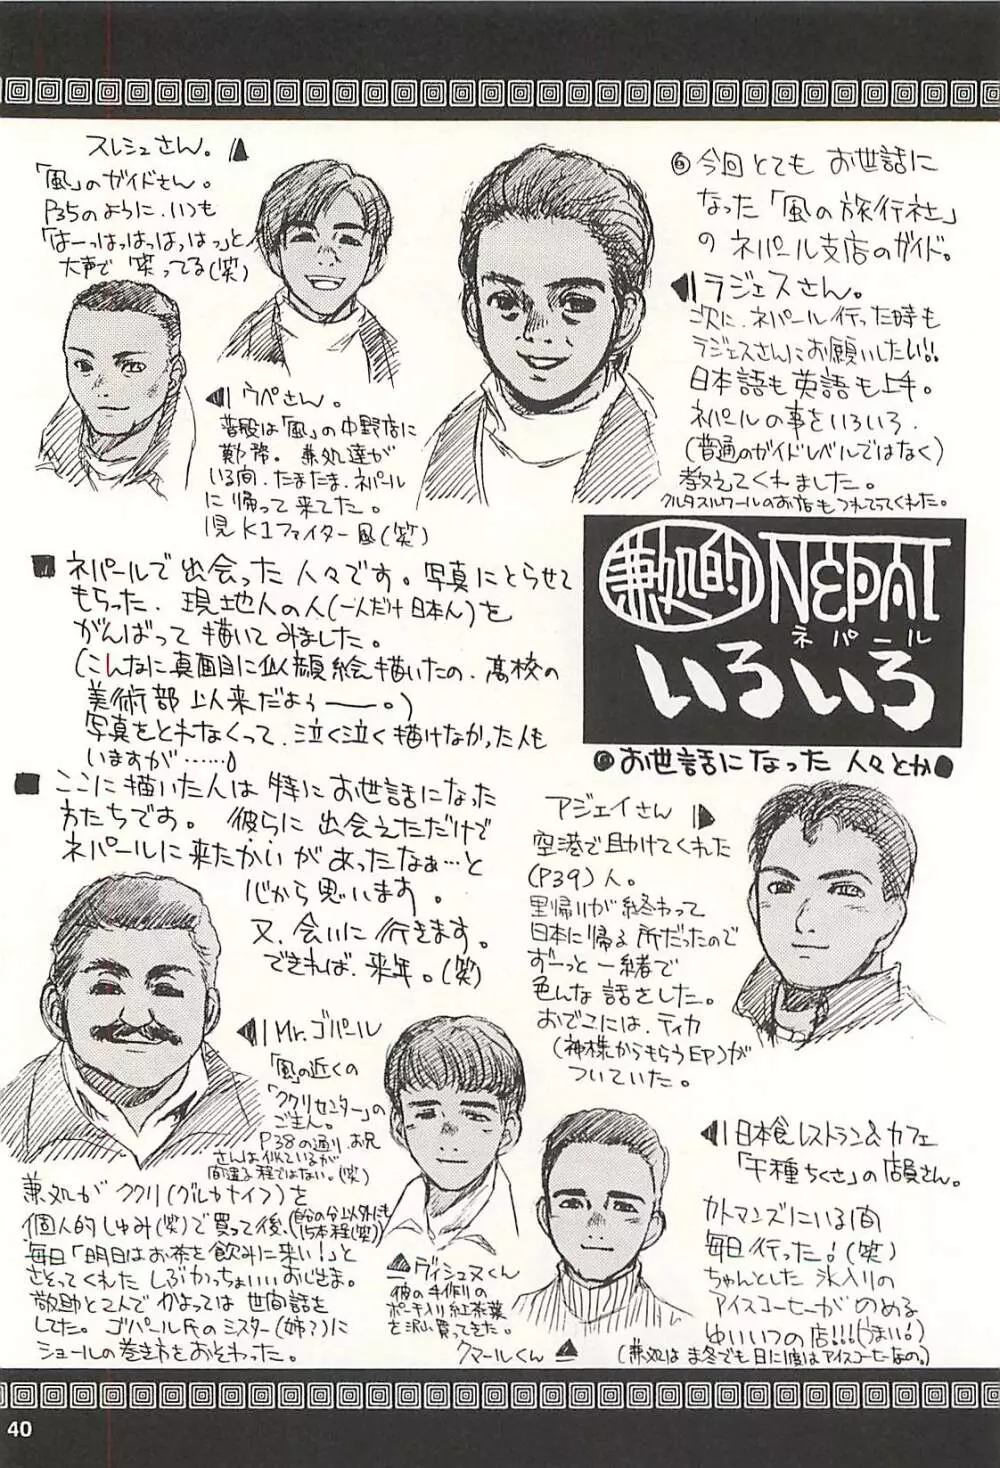 ◎今回とても お世話に
なった「風の旅行社」
の ネパール支店のガイド。
ラジェスさん。
次に、ネパール行った時も
ラジェスさんにお願いしたい!!
日本語も英語も上手。
ネパールの事をいろいろ、
(普通のガイドレベルではなく)
教えてくれました。
クルタスルワールのお店もつれてってくれた。
スレシュさん。
「風」のガイドさん。
P35のように、いつも
「はーっはっはっはっはっ」と
大声で 笑ってる(笑)
ウペさん。
普段は「風」の中野店に
勤務。兼処達が
いる間、たまたま、ネパール
に帰って来てた。
K1ファイター風(笑)
兼処的 NEPAL
ネパール
いろいろ
お世話になった 人々とか
■ ネパールで 出会った 人々です。写真にとらせて
もらった、現地人の人(一人だけ日本人)を
がんばって 描いて みました。
(こんなに真面目に似顔絵描いたの、高校の
美術部以来だよぅー。)
写真をとれなくって、泣く泣く描けなかった人も
いますが……
■ ここに描いた人は 特に お世話になった
方たちです。彼らに 出会えただけで
ネパールに来たかいが あったなぁ…と
心から 思います。
又、会いに 行きます。
できれば、来年。(笑)
アジェイさん
空港で助けてくれた
(P39)人。
里帰りが 終わって
日本に帰る所だったので
ずーっと 一緒で
色んな 話をした。
おでこには、ティカ
(神様からもらう印)が
ついていた。
Mr.ゴパール
「風」の近くの
「ククリセンター」の
ご主人。
P38の通り、お兄
さんは似ているが
間違える程ではない。(笑)
兼処が ククリ(グルカナイフ)を
個人的しゅみ(笑)で買って後、
毎日「明日はお茶を飲みに来い!」と
さそってくれた しぶかっちょいいおじさま。
敬助と2人で かよっては 世間話を
してた。ゴパール氏のミスター(姉?)に
ショールの巻き方をおそわった。
ヴィシュヌくん
彼の手作りの
ポーチ入り紅茶葉
を沢山買ってきた。
クマールくん
日本食レストラン&カフェ
「千種ちくさ」の店員さん。
カトマンズにいる間
毎日 行った!(笑)
ちゃんとした 氷入りの
アイスコーヒーが のめる
ゆいいつの店!!!(うまい!)
(兼処は ま冬でも 日に1度はアイスコーヒーなの。)
40